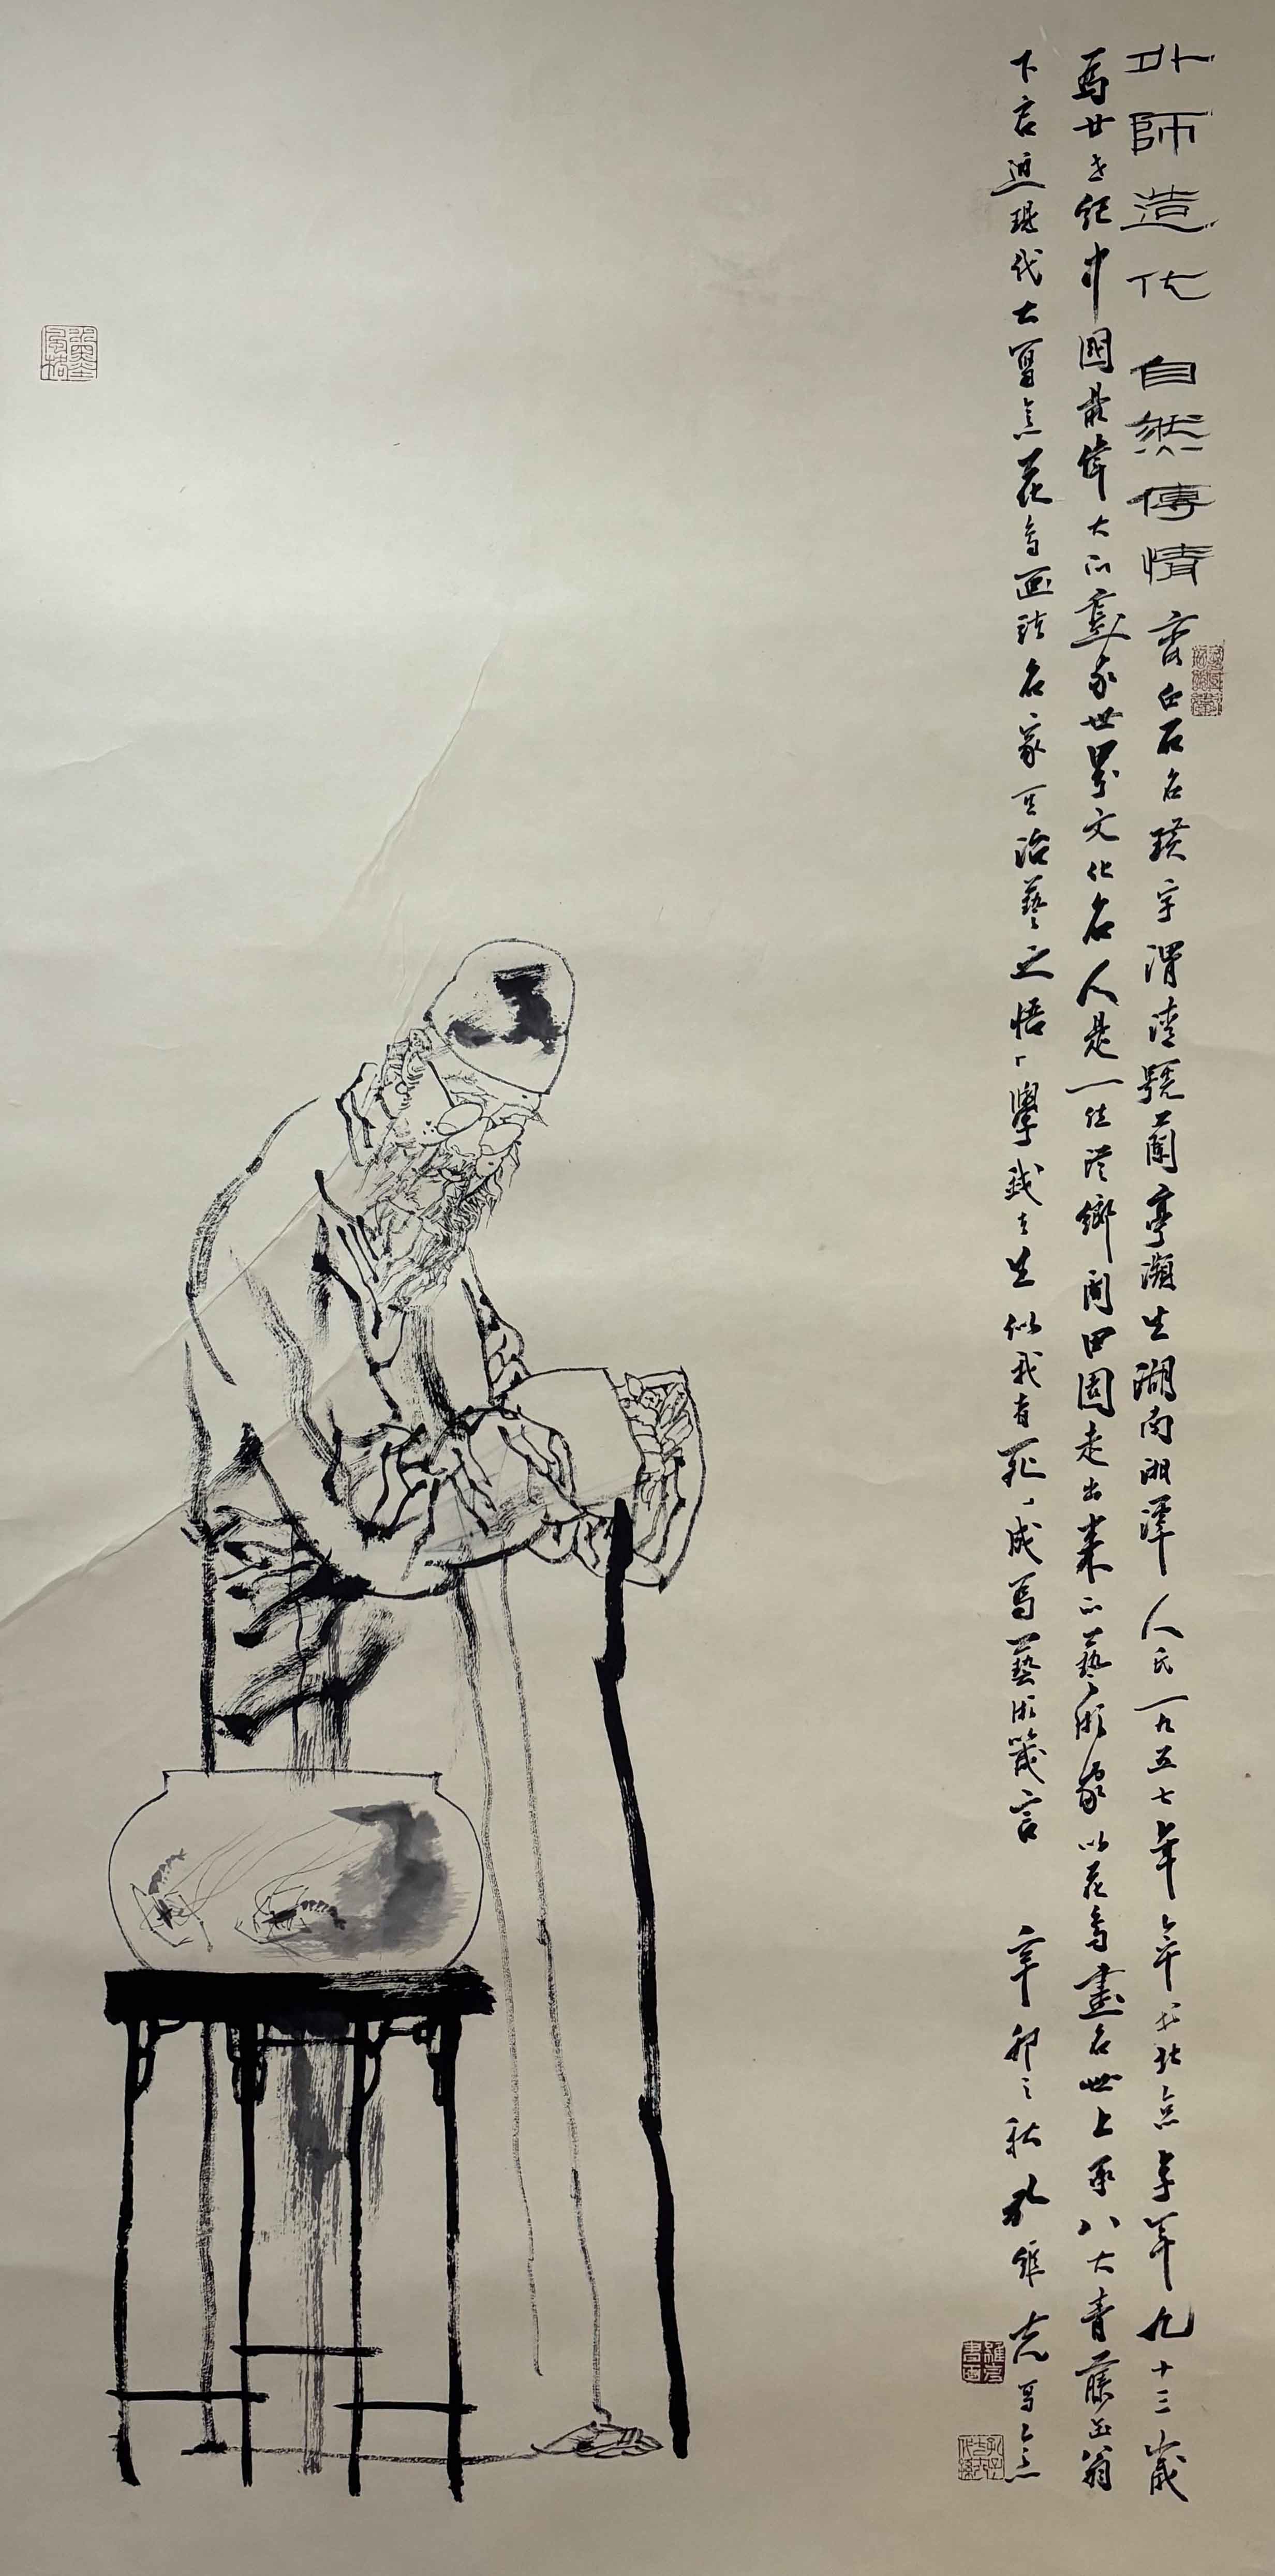 外師造化自然傳情齊白石名璜字渭清號蘭亭瀕生湖南湘潭人氏一九五七年卒於北京享年九十三歲
為廿世紀中國最偉大的畫家世界文化名人是一位從鄉間田園走出來的藝術家以花鳥畫名世上承八大青藤缶翁
下啟近現代大寫意花鳥畫法名家其治藝之悟學我者生似我者死成為藝術箴言
辛卯之秋孔維克寫意